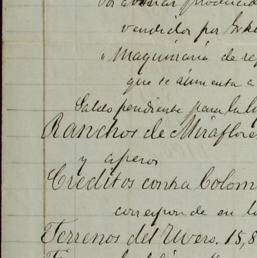 por avaluar producido
vendidos por
" Maquinaria de re
que se aumenta a
Saldo pendiente para la
Ranchos de Miraflore
y aperos
Creditos contra Colom
corresponde en lo
Terrenos del Uvero. 15,8